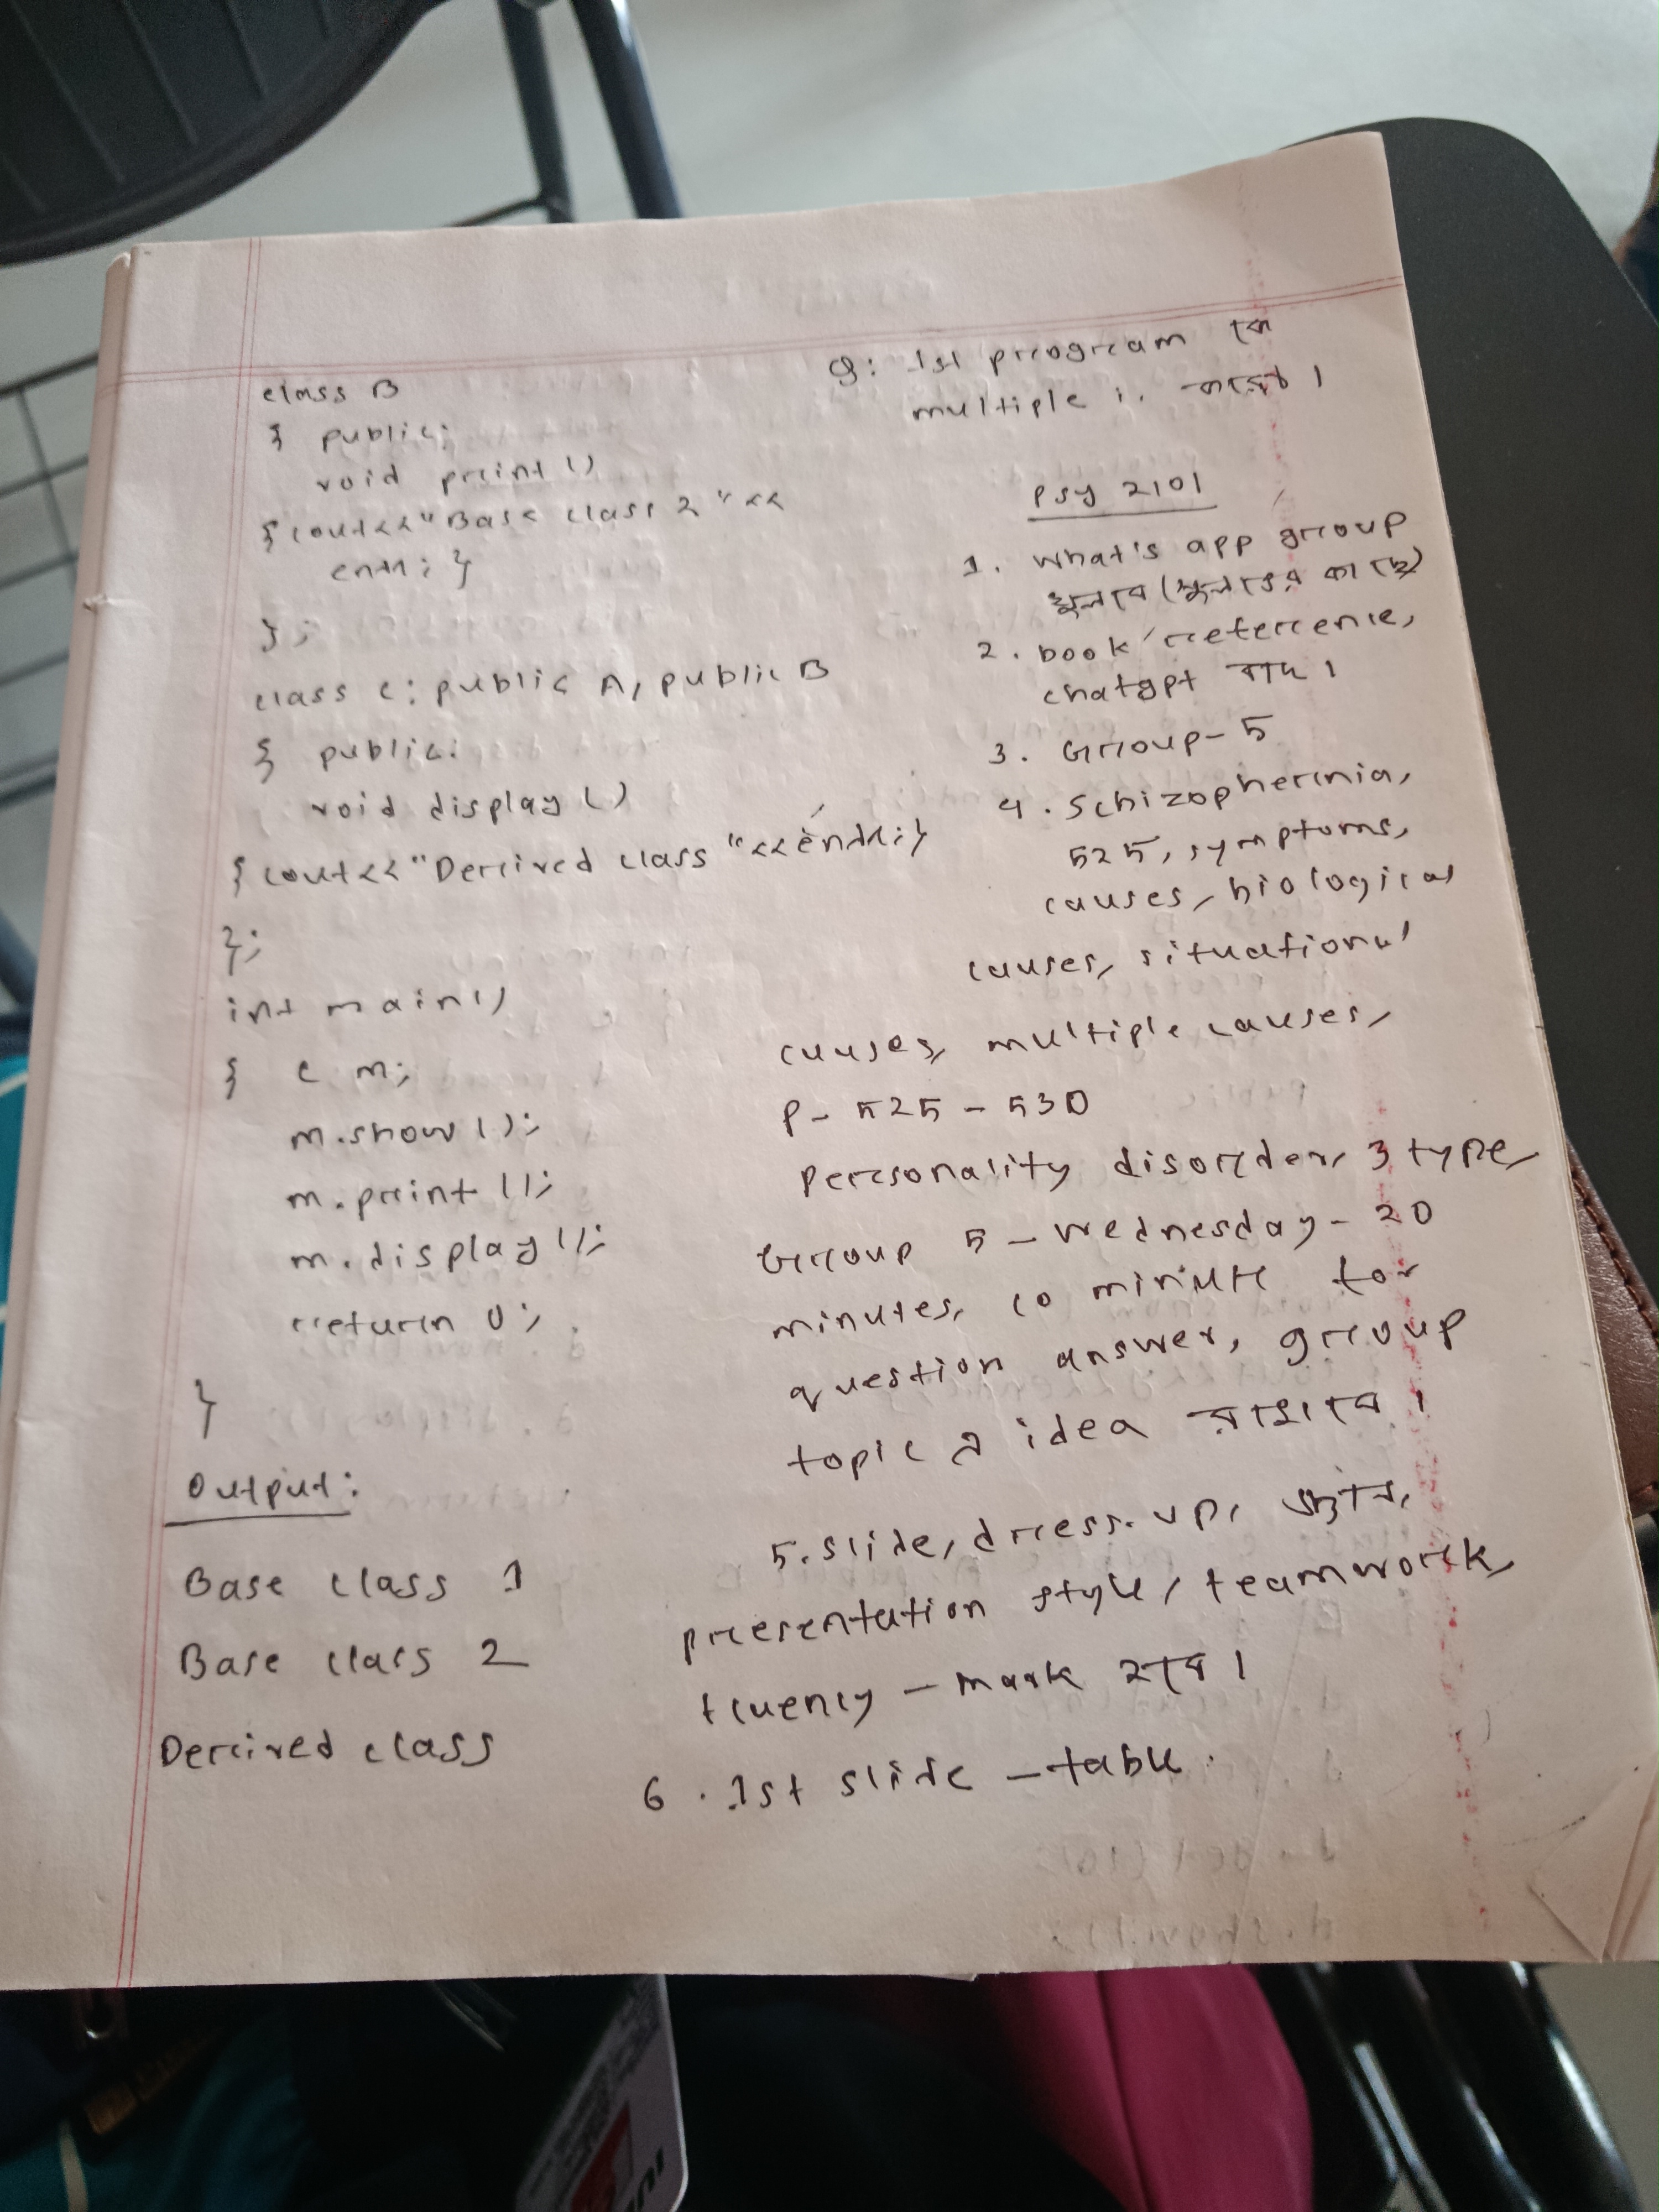 class B
{ public:
void print ()
{ cout<<"Base class 2"<<
endl; }
};
class C: public A, public B
{ public:
void display ()
{ cout<<"Derived class"<<endl;}
};
int main()
{ C m;
m.show();
m.print();
m.display();
return 0;
}
Output:
Base class 1
Base class 2
Derived class
g: 1st program কে
multiple i. করতে।
Psy 2101
1. what's app group
খুলবে ( কাছে)
2. book reference,
chatgpt বাদ।
3. Group-5
4. Schizophernia,
525, symptoms,
causes, biological
causes, situational
causes, multiple causes,
P- 525 - 530
Personality disorder, 3 type,
Group 5 - Wednesday - 20
minutes, 10 minute for
question answer, group
topic এ idea রাখবে।
5. slide, dress. up,
presentation style, teamwork,
fluency - mark হবে।
6. 1st slide - table.